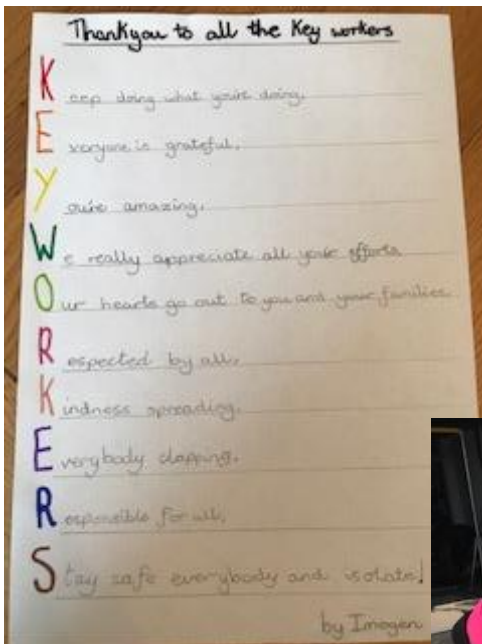 Thankyou to all the Key workers
Keep doing what you're doing.
Everyone is grateful.
You're amazing.
We really appreciate all your efforts
Our hearts go out to you and your families
Respected by all.
Kindness spreading.
Everybody clapping.
Responsible for all.
Stay safe everybody and isolate!
by Imogen